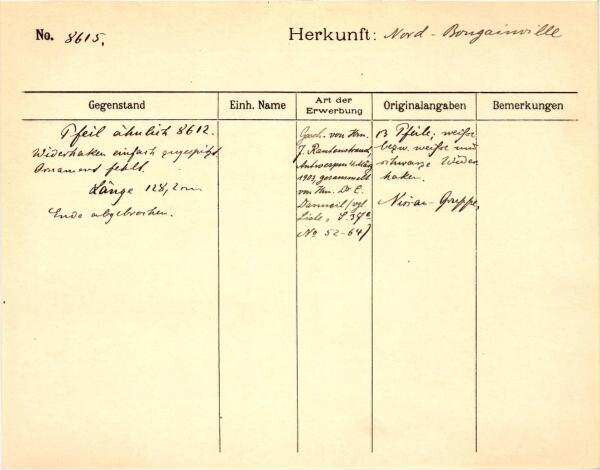 No. 8615,
Herkunft: Nord-Bougainville
Gegenstand
Einh. Name
Art der Erwerbung
Originalangaben
Bemerkungen
Pfeil ähnlich 8612.
Widerhaken einfach zugespitzt
Ornament fehlt.
Länge 128,2 cm
Ende abgebrochen.
Gesch. von Hrn.
J. Rautenstrauch,
Antwerpen März
1903, gesammelt
von Hrn. Dr. E.
Danneil (vgl.
Liste, S.
No 52-64)
13 Pfeile, weiße
bezw. weiße und
schwarze Wider
haken.
Nissan-Gruppe,